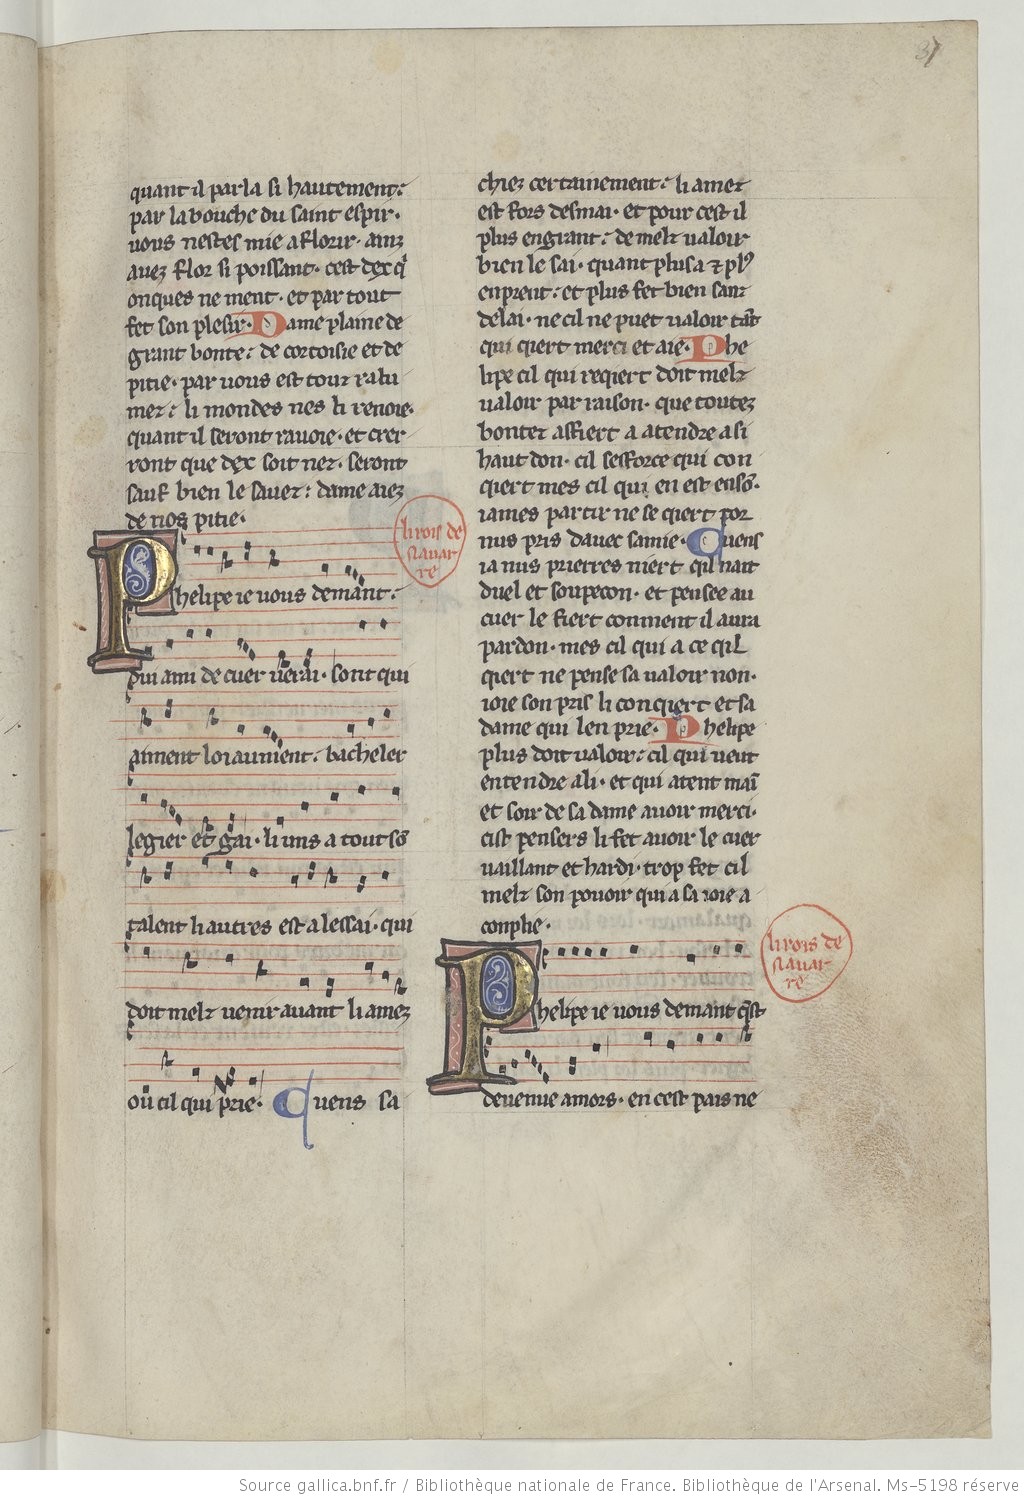 37
quant il parla si hautement:
par la bouche du saint espir.
uous nestes mie a florir. ainz
auez flor si poissant. cest dex q̇
onques ne ment. et par tout
fet son plesir. Dame plaine de
grant bonte: de cortoisie et de
pitie. par uous est touz ralu
mez: li mondes nes li renoie.
quant il seront rauoie. et crer
ront que dex soit nez. seront
sauf bien le sauez: dame aiez
de nos pitie.
li rois de
nauar
re
Phelipe ie uous demant:
Dui ami de cuer uerai. sont qui
aiment loiaument: bacheler
legier et gai. li uns a tout sō
talent li autres est a lessai. qui
doit melz uenir auant li amez
ou cil qui prie. Cuens sa
chiez certainement: li amez
est fors desmai. et pour cest il
plus engrant: de melz ualoir
bien le sai. quant plus a ⁊ pl⁹
enprent: et plus fet bien sanz
delai. ne cil ne puet ualoir tāt
qui qiert merci et aie. Phe
lipe cil qui reqiert doit melz
ualoir par raison. que toutez
bontez affiert a atendre a si
haut don. cil sesforce qui con
qiert mes cil qui en est ensō.
iames partir ne se qiert por
nus pris dauec samie. Cuens
ia nus prierres niert qil nait
duel et soupecon. et pensee au
cuer le fiert comment il aura
pardon. mes cil qui a ce qil
qiert ne pense sa ualoir non.
ioie son pris li conqiert et sa
dame qui len prie. Phelipe
plus doit ualoir: cil qui ueut
entendre a li. et qui atent maī
et soir de sa dame auoir merci.
cist pensers li fet auoir le cuer
uaillant et hardi. trop fet cil
melz son pouoir qui a sa ioie a
conplie.
li rois de
nauar
re
Phelipe ie uous demant q̄st
deuenue amors. en cest pais ne
Source gallica.bnf.fr / Bibliothèque nationale de France. Bibliothèque de l'Arsenal. Ms-5198 réserve